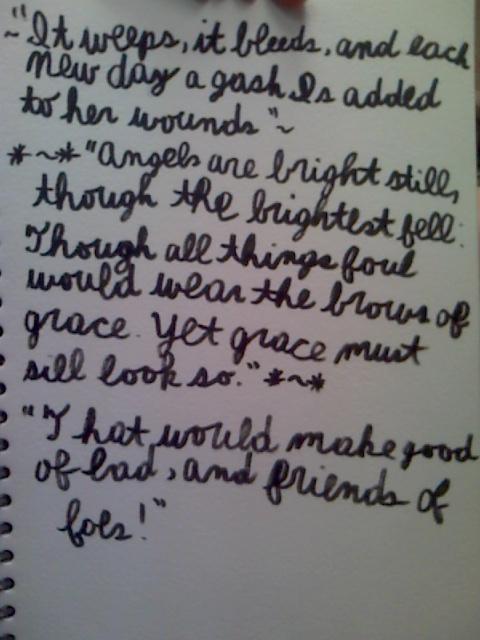 ~"It weeps, it bleeds, and each
new day a gash Is added
to her wounds"~
*~*"Angels are bright still,
though the brightest fell:
Though all things foul
would wear the brows of
grace. Yet grace must
sill look so."*~*
"That would make good
of bad, and friends of
foes!"